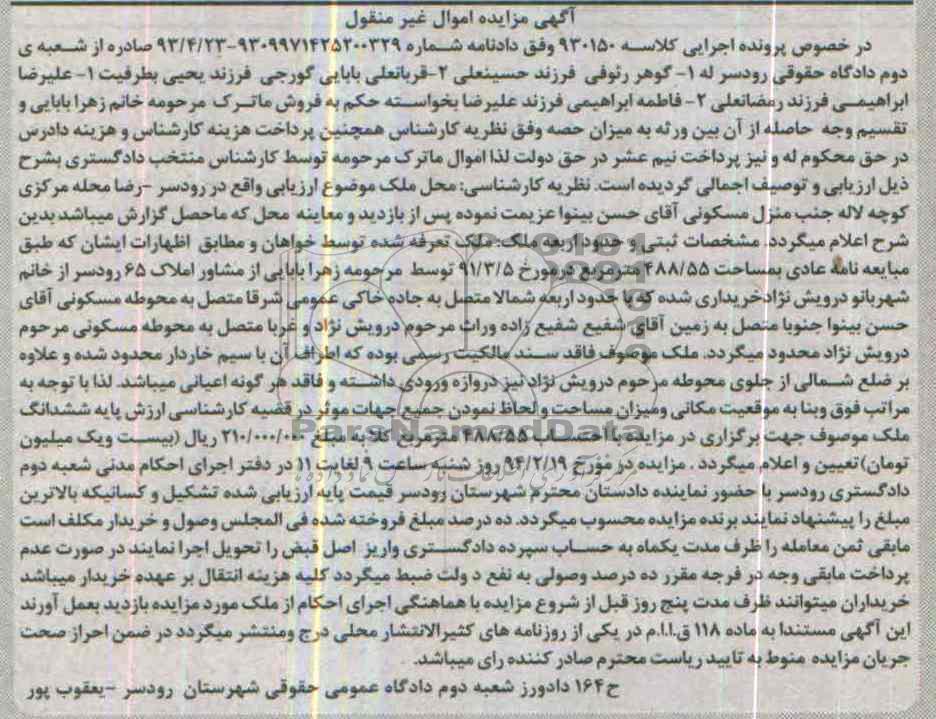 آگهی مزایده اموال غیر منقول
در خصوص پرونده اجرایی کلاسه ۹۳۰۱۵۰ وفق دادنامه شماره ۹۳۰۹۹۷۱۴۲۵۲۰۰۳۲۹-۹۳/۴/۲۳ صادره از شعبه ی
دوم دادگاه حقوقی رودسر له ۱- گوهر رئوفی فرزند حسینعلی ۲-قربانعلی بابایی گورجی فرزند یحیی بطرفیت ۱- علیرضا
ابراهیمی فرزند رمضانعلی ۲- فاطمه ابراهیمی فرزند علیرضا بخواسته حکم به فروش ماترک مرحومه خانم زهرا بابایی و
تقسیم وجه حاصله از آن بین ورثه به میزان حصه وفق نظریه کارشناس همچنین پرداخت هزینه کارشناس و هزینه دادرس
در حق محکوم له و نیز پرداخت نیم عشر در حق دولت لذا اموال ماترک مرحومه توسط کارشناس منتخب دادگستری بشرح
ذیل ارزیابی و توصیف اجمالی گردیده است. نظریه کارشناسی: محل ملک موضوع ارزیابی واقع در رودسر -رضا محله مرکزی
کوچه لاله جنب منزل مسکونی آقای حسن بینوا عزیمت نموده پس از بازدید و معاینه محل که ماحصل گزارش میباشد بدین
شرح اعلام میگردد. مشخصات ثبتی و حدود اربعه ملک: ملک تعرفه شده توسط خواهان و مطابق اظهارات ایشان که طبق
مبایعه نامه عادی بمساحت ۴۸۸/۵۵ مترمربع درمورخ ۹۱/۳/۵ توسط مرحومه زهرا بابایی از مشاور املاک ۶۵ رودسر از خانم
شهربانو درویش نژاد خریداری شده که با حدود اربعه شمالا متصل به جاده خاکی عمومی شرقا متصل به محوطه مسکونی آقای
حسن بینوا جنوبا متصل به زمین آقای شفیع شفیع زاده وراث مرحوم درویش نژاد و غربا متصل به محوطه مسکونی مرحوم
درویش نژاد محدود میگردد. ملک موصوف فاقد سند مالکیت رسمی بوده که اطراف آن با سیم خاردار محدود شده و علاوه
بر ضلع شمالی از جلوی محوطه مرحوم درویش نژاد نیز دروازه ورودی داشته و فاقد هر گونه اعیانی میباشد. لذا با توجه به
مراتب فوق وبنا به موقعیت مکانی ومیزان مساحت و لحاظ نمودن جمیع جهات موثر در قضیه کارشناسی ارزش پایه ششدانگ
ملک موصوف جهت برگزاری در مزایده با احتساب ۴۸۸/۵۵ مترمربع کلا به مبلغ ۲۱۰/۰۰۰/۰۰۰ ریال (بیست ویک میلیون
تومان) تعیین و اعلام میگردد . مزایده در مورخ ۹۴/۲/۱۹ روز شنبه ساعت ۹ لغایت ۱۱ در دفتر اجرای احکام مدنی شعبه دوم
دادگستری رودسر با حضور نماینده دادستان محترم شهرستان رودسر قیمت پایه ارزیابی شده تشکیل و کسانیکه بالاترین
مبلغ را پیشنهاد نمایند برنده مزایده محسوب میگردد. ده درصد مبلغ فروخته شده فی المجلس وصول و خریدار مکلف است
مابقی ثمن معامله را ظرف مدت یکماه به حساب سپرده دادگستری واریز اصل قبض را تحویل اجرا نمایند در صورت عدم
پرداخت مابقی وجه در فرجه مقرر ده درصد وصولی به نفع د ولت ضبط میگردد کلیه هزینه انتقال بر عهده خریدار میباشد
خریداران میتوانند ظرف مدت پنج روز قبل از شروع مزایده با هماهنگی اجرای احکام از ملک مورد مزایده بازدید بعمل آورند
این آگهی مستندا به ماده ۱۱۸ ق.ا.ا.م در یکی از روزنامه های کثیرالانتشار محلی درج ومنتشر میگردد در ضمن احراز صحت
جریان مزایده منوط به تایید ریاست محترم صادر کننده رای میباشد.
ح ۱۶۴ دادورز شعبه دوم دادگاه عمومی حقوقی شهرستان رودسر -یعقوب پور
ParsNamadData